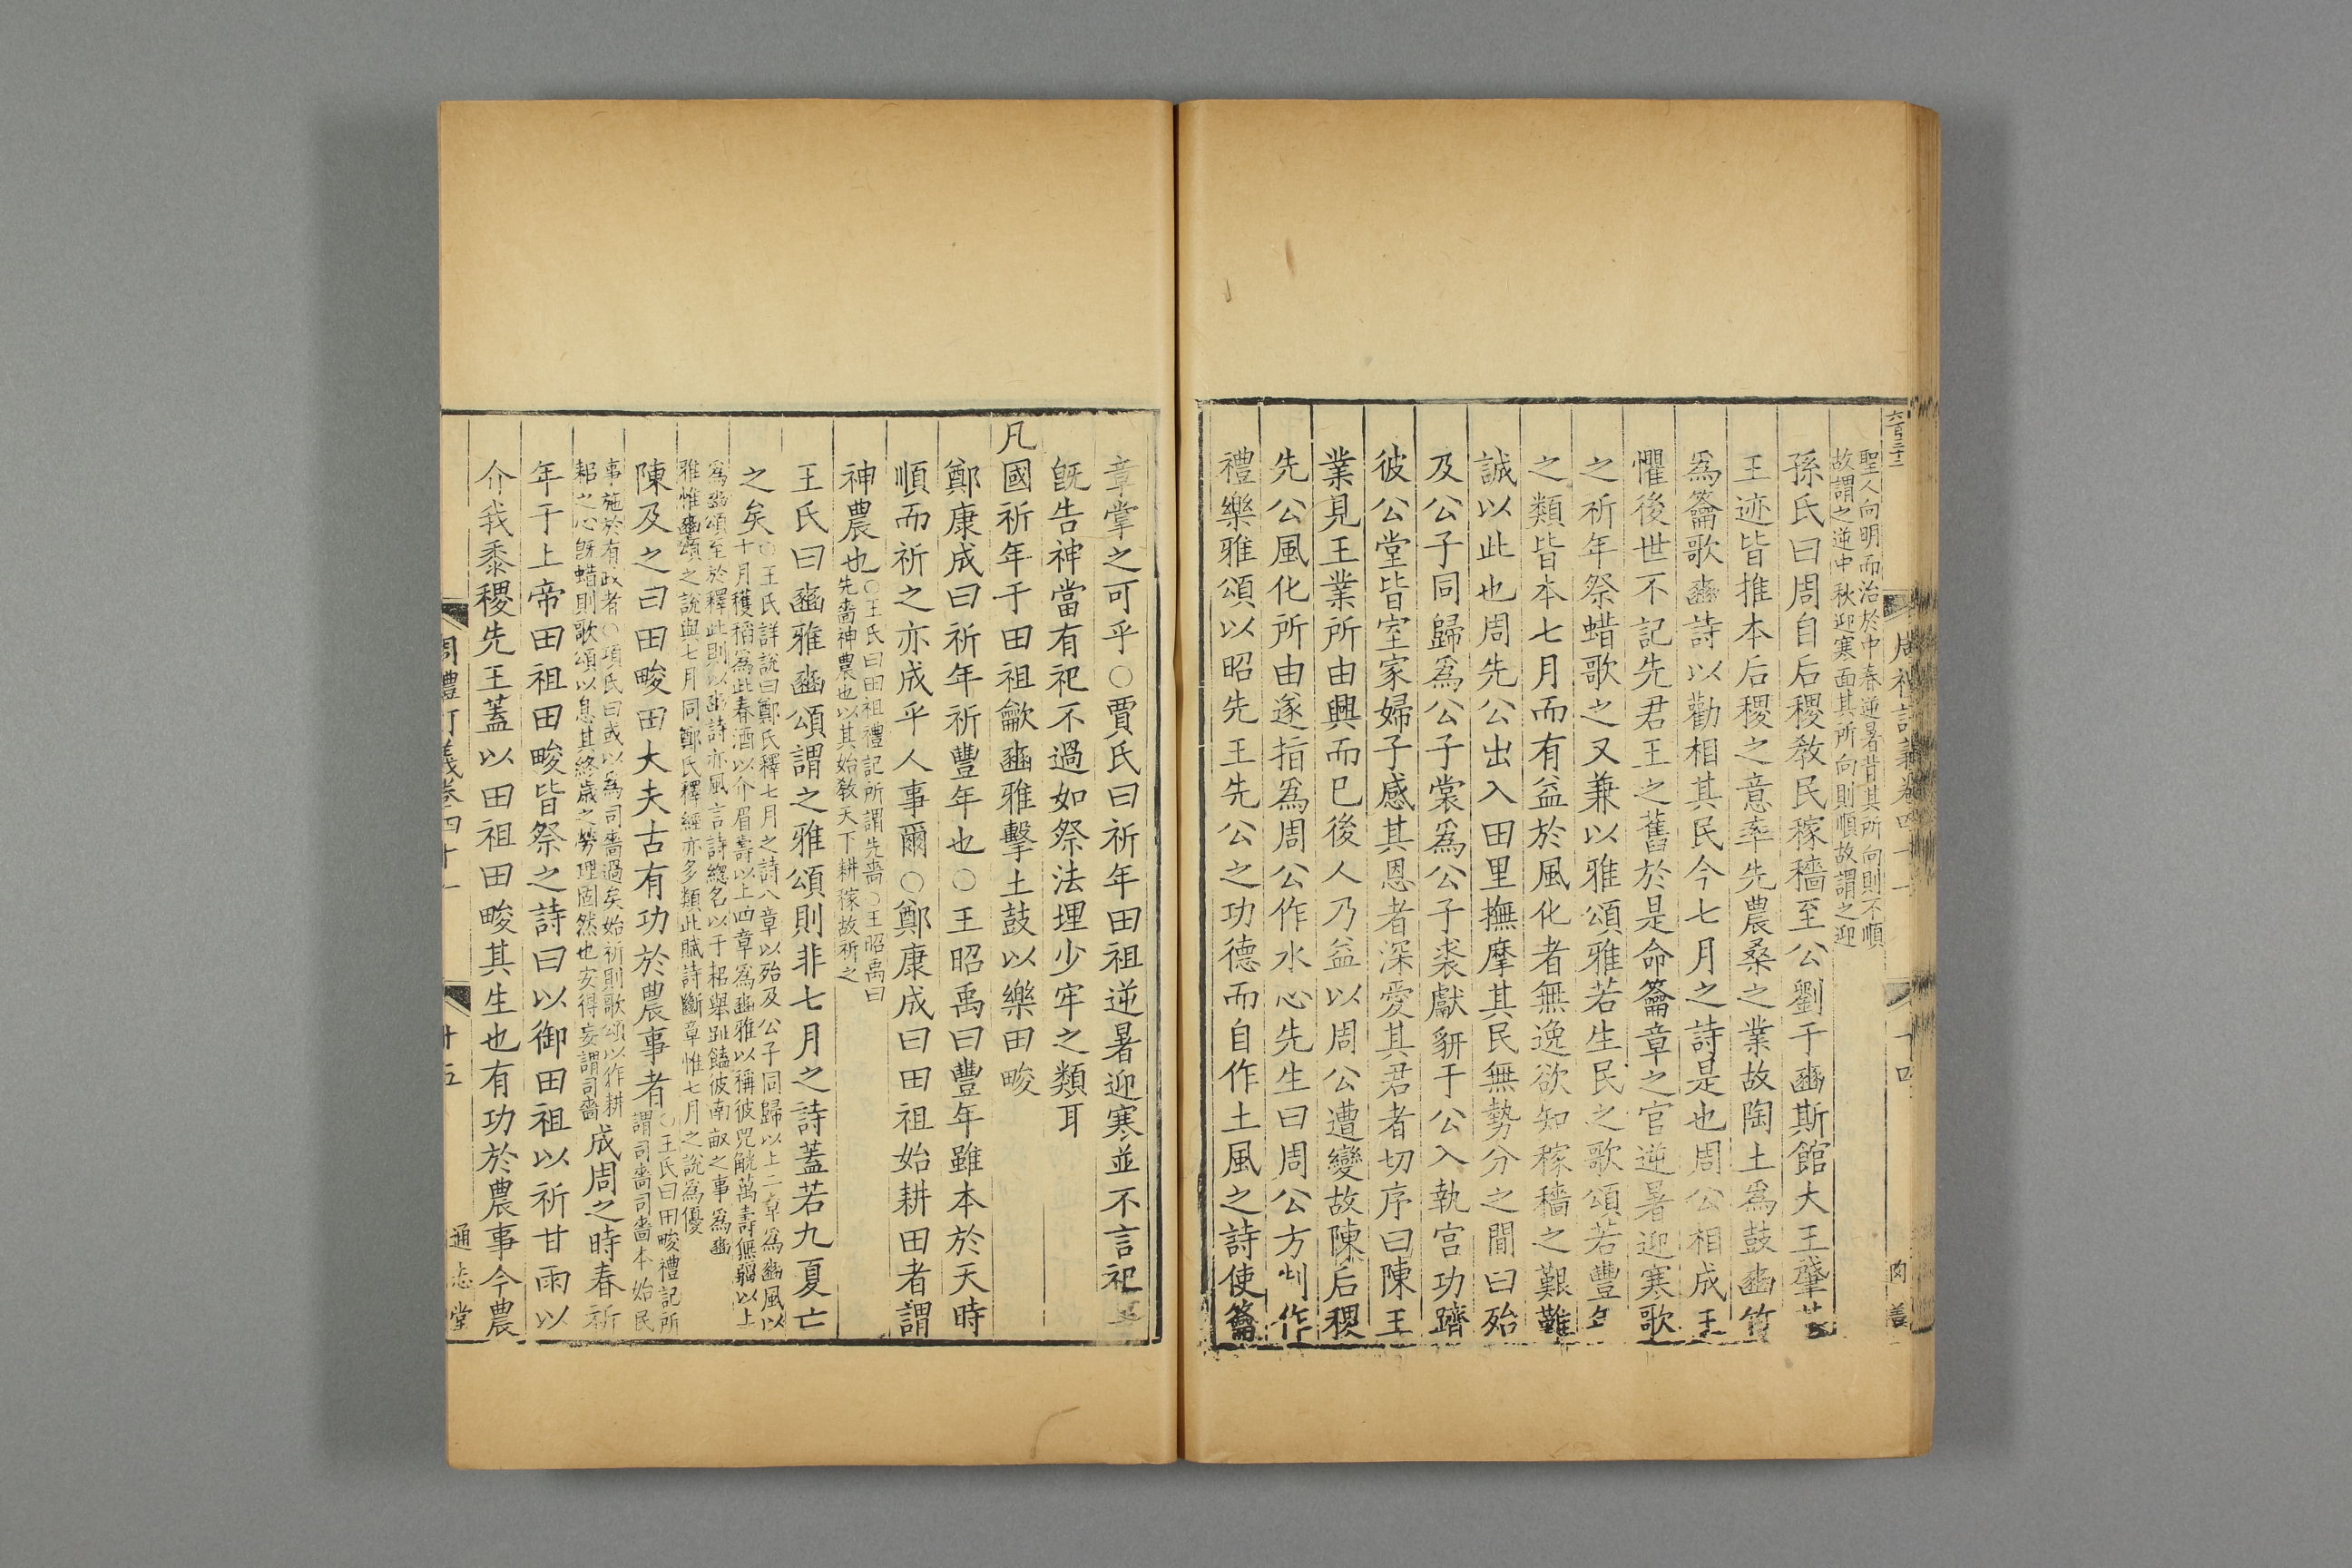 六百三十二
聖人向明而治於中春逆暑背其所向則不順
故謂之逆中秋迎寒面其所向則順故謂之迎
孫氏曰周自后稷敎民稼穡至公劉于豳斯館大王肇
王迹皆推本后稷之意率先農桑之業故陶土爲鼓豳竹
爲籥歌豳詩以勸相其民今七月之詩是也周公相成王
懼後世不記先君王之舊於是命籥章之官逆暑迎寒歌
之祈年祭蜡歌之又兼以雅頌雅若生民之歌頌若豐年
之類皆本七月而有益於風化者無逸欲知稼穡之艱難
誠以此也周先公出入田里撫摩其民無勢分之間曰殆
及公子同歸爲公子裳爲公子裘獻豣于公入執宮功躋
彼公堂皆室家婦子感其恩者深愛其君者切序曰陳王
業見王業所由興而已後人乃益以周公遭變故陳后稷
先公風化所由遂指爲周公作水心先生曰周公方作
禮樂雅頌以昭先王先公之功德而自作土風之詩使籥
章掌之可乎○賈氏曰祈年田祖逆暑迎寒並不言祀
旣告神當有祀不過如祭法埋少牢之類耳
凡國祈年于田祖龡豳雅擊土鼓以樂田畯
鄭康成曰祈年祈豐年也○王昭禹曰豐年雖本於天時
順而祈之亦成乎人事爾○鄭康成曰田祖始耕田者謂
神農也○王氏曰田祖禮記所謂先嗇○王昭禹曰
先嗇神農也以其始敎天下耕稼故祈之
王氏曰豳雅豳頌謂之雅頌則非七月之詩蓋若九夏亡
之矣○王氏詳說曰鄭氏釋七月之詩八章以殆及公子同歸以上二章爲豳風以
十月穫稻爲此春酒以介眉壽以上四章爲豳雅以稱彼兕觥萬壽無疆以上
爲豳頌至於釋此則以豳詩亦風言詩總名以于耜舉趾饁彼南畝之事爲豳
雅惟豳頌之說與七月同鄭氏釋經亦多類此賦詩斷章惟七月之說爲優
陳及之曰田畯田大夫古有功於農事者○王氏曰田畯禮記所
謂司嗇司嗇本始民
事施於有政者○項氏曰或以爲司嗇過矣始祈則歌頌以作耕
耜之心旣蜡則歌頌以息其終歲之勞理固然也安得妄謂司嗇
成周之時春祈
年于上帝田祖田畯皆祭之詩曰以御田祖以祈甘雨以
介我黍稷先王蓋以田祖田畯其生也有功於農事今農
周禮訂義卷四十一
廿五
通志堂